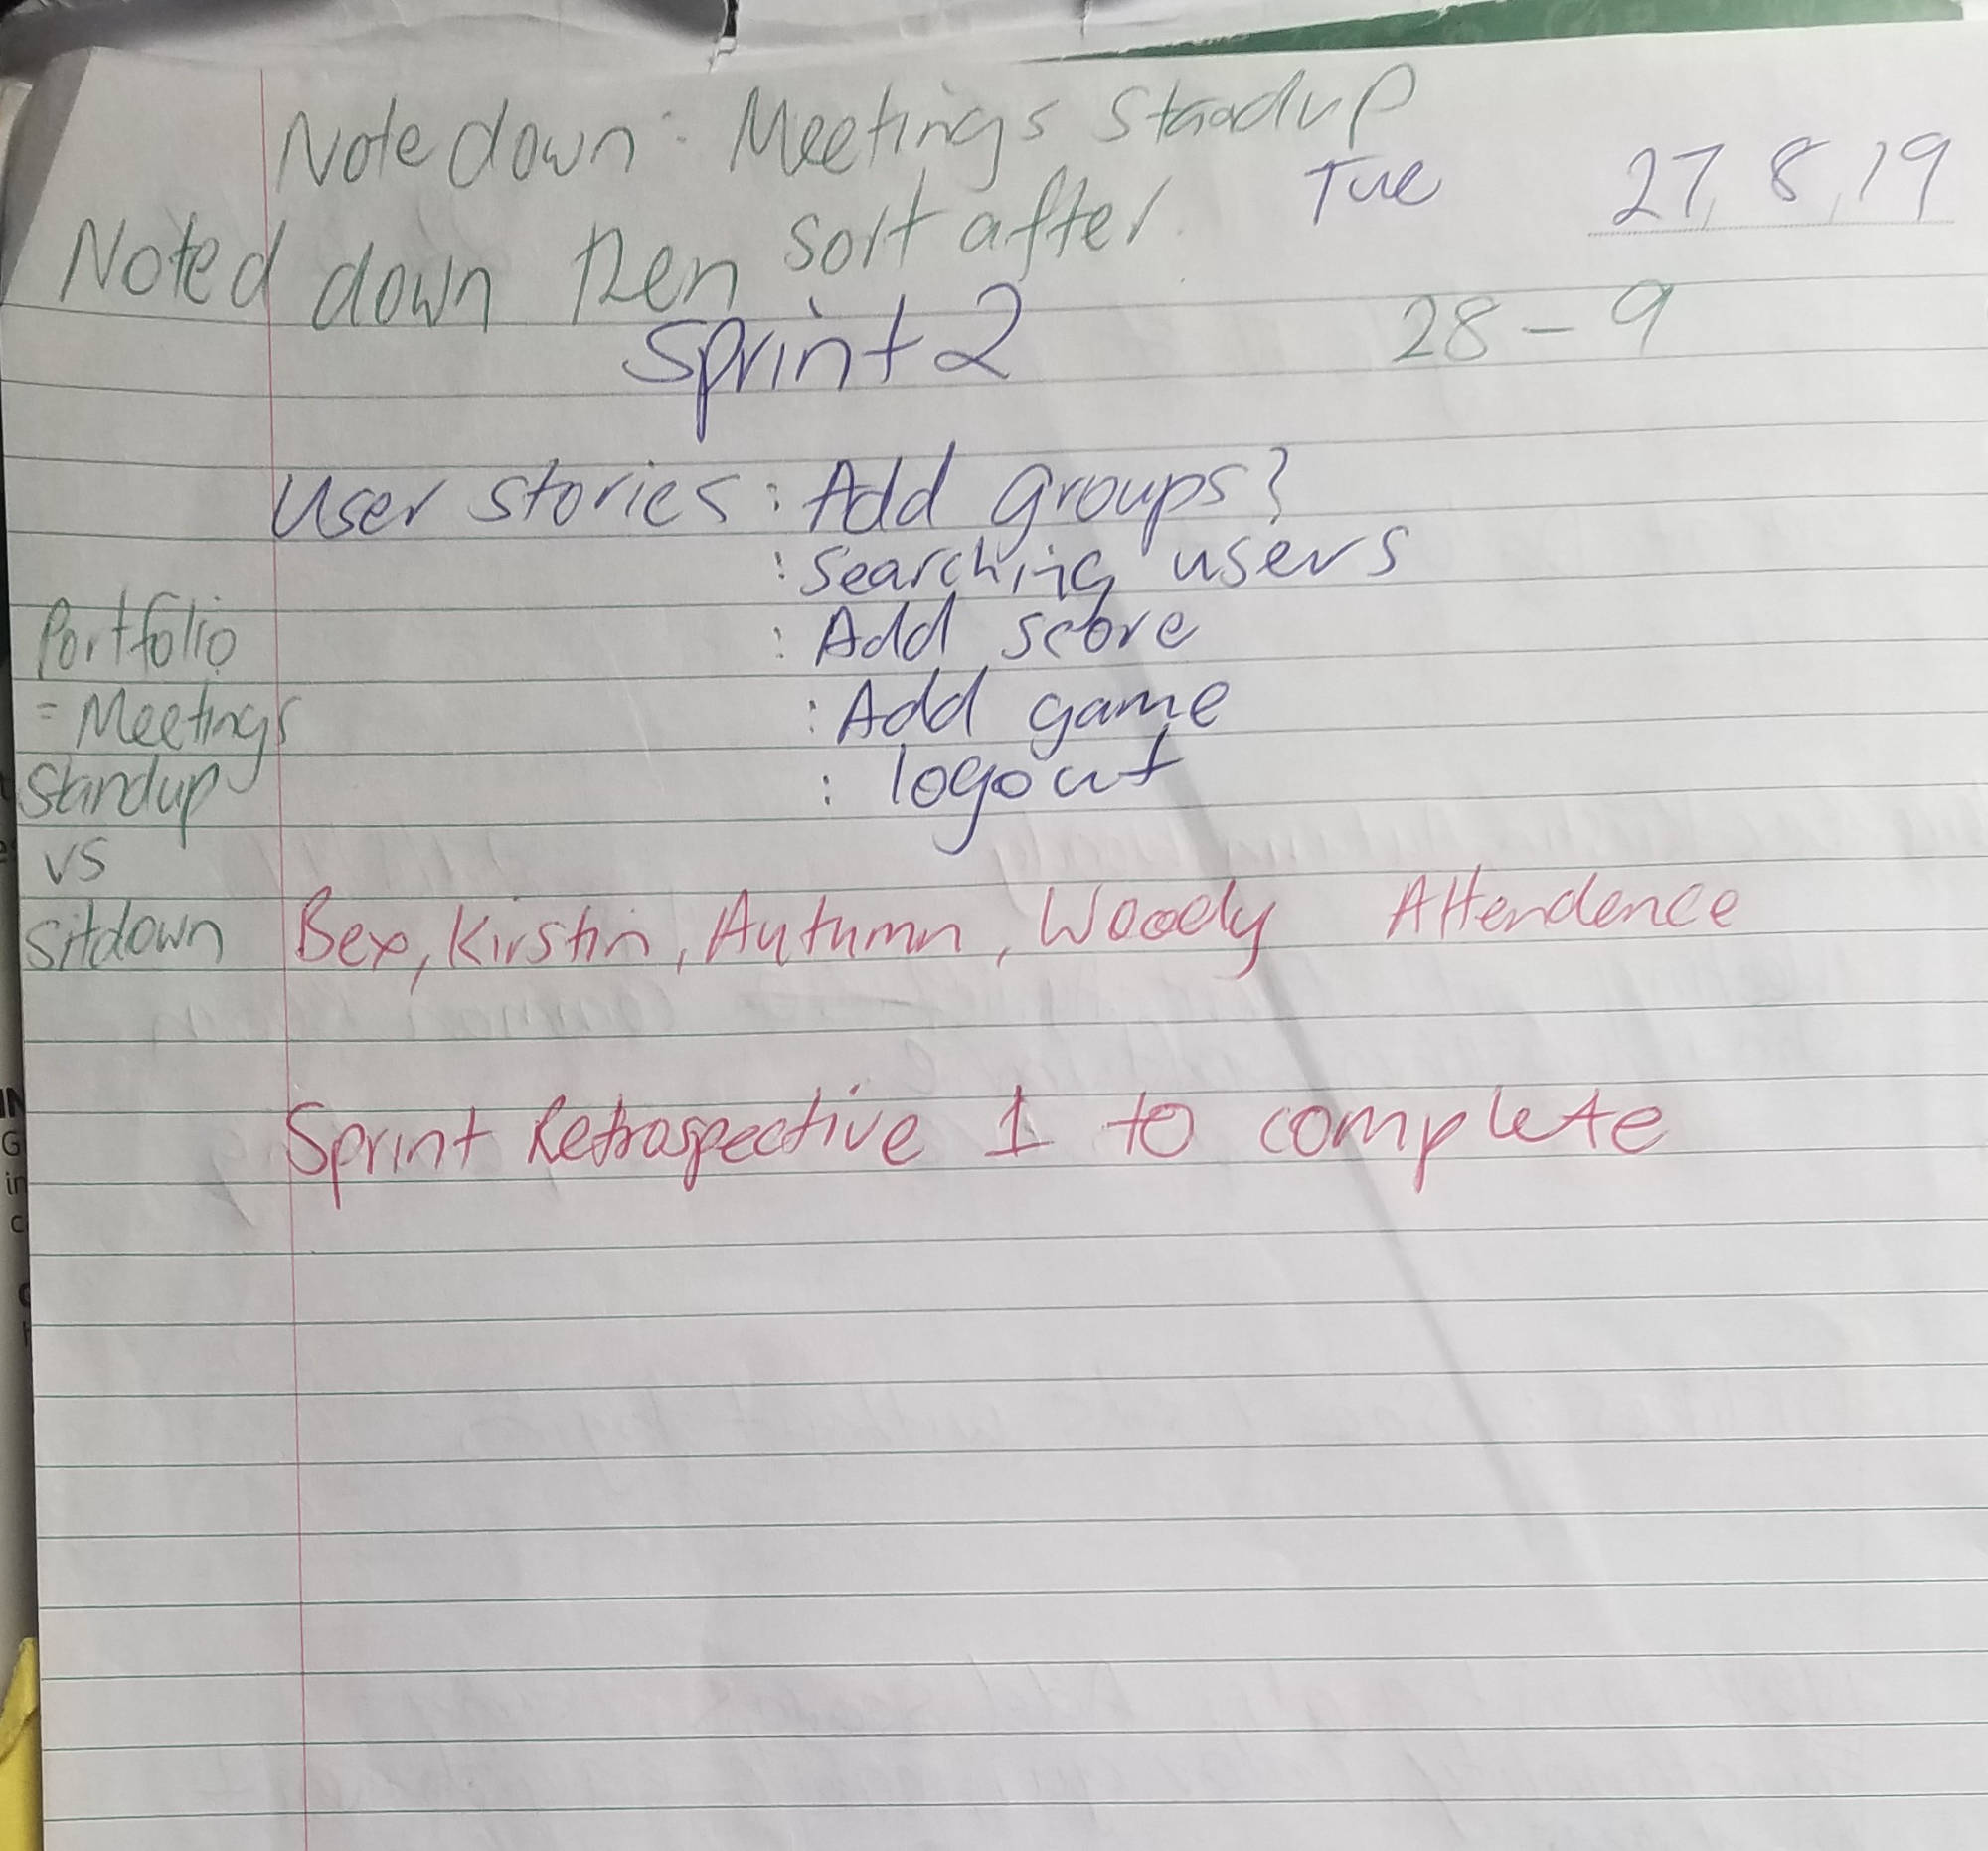 Note down: Meetings Standup
Tue 27, 8, 19
Noted down then sort after.
28 - 9
Sprint 2
User stories : Add groups?
: Searching users
: Add score
: Add game
: logout
Portfolio
= Meetings
Standup
vs
Sitdown
Bex, Kirstin, Autumn, Woody Attendence
Sprint Retrospective 1 to complete